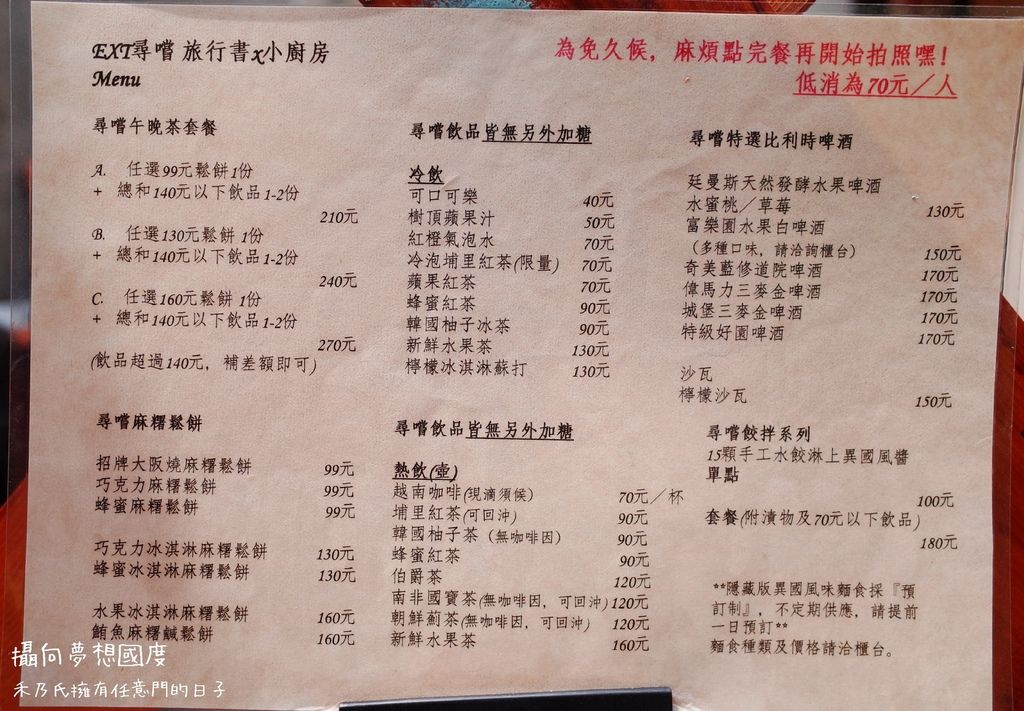 EXT尋嚐 旅行書x小廚房
Menu
為免久候，麻煩點完餐再開始拍照嘿！
低消為70元／人
尋嚐午晚茶套餐
A. 任選99元鬆餅1份
+ 總和140元以下飲品1-2份
210元
B. 任選130元鬆餅 1份
+ 總和140元以下飲品1-2份
240元
C. 任選160元鬆餅 1份
+ 總和140元以下飲品1-2份
270元
(飲品超過140元，補差額即可)
尋嚐麻糬鬆餅
招牌大阪燒麻糬鬆餅 99元
巧克力麻糬鬆餅 99元
蜂蜜麻糬鬆餅 99元
巧克力冰淇淋麻糬鬆餅 130元
蜂蜜冰淇淋麻糬鬆餅 130元
水果冰淇淋麻糬鬆餅 160元
鮪魚麻糬鹹鬆餅 160元
尋嚐飲品皆無另外加糖
冷飲
可口可樂 40元
樹頂蘋果汁 50元
紅橙氣泡水 70元
冷泡埔里紅茶(限量) 70元
蘋果紅茶 70元
蜂蜜紅茶 90元
韓國柚子冰茶 90元
新鮮水果茶 130元
檸檬冰淇淋蘇打 130元
尋嚐飲品皆無另外加糖
熱飲(壺)
越南咖啡(現滴須候) 70元／杯
埔里紅茶(可回沖) 90元
韓國柚子茶（無咖啡因） 90元
蜂蜜紅茶 90元
伯爵茶 120元
南非國寶茶(無咖啡因，可回沖) 120元
朝鮮薊茶(無咖啡因，可回沖) 120元
新鮮水果茶 160元
尋嚐特選比利時啤酒
廷曼斯天然發酵水果啤酒
水蜜桃／草莓 130元
富樂園水果白啤酒
（多種口味，請洽詢櫃台） 150元
奇美藍修道院啤酒 170元
偉馬力三麥金啤酒 170元
城堡三麥金啤酒 170元
特級好園啤酒 170元
沙瓦
檸檬沙瓦 150元
尋嚐餃拌系列
15顆手工水餃淋上異國風醬
單點
100元
套餐(附漬物及70元以下飲品)
180元
**隱藏版異國風味麵食採『預
訂制』，不定期供應，請提前
一日預訂**
麵食種類及價格請洽櫃台。
攝向夢想國度
禾乃氏擁有任意門的日子